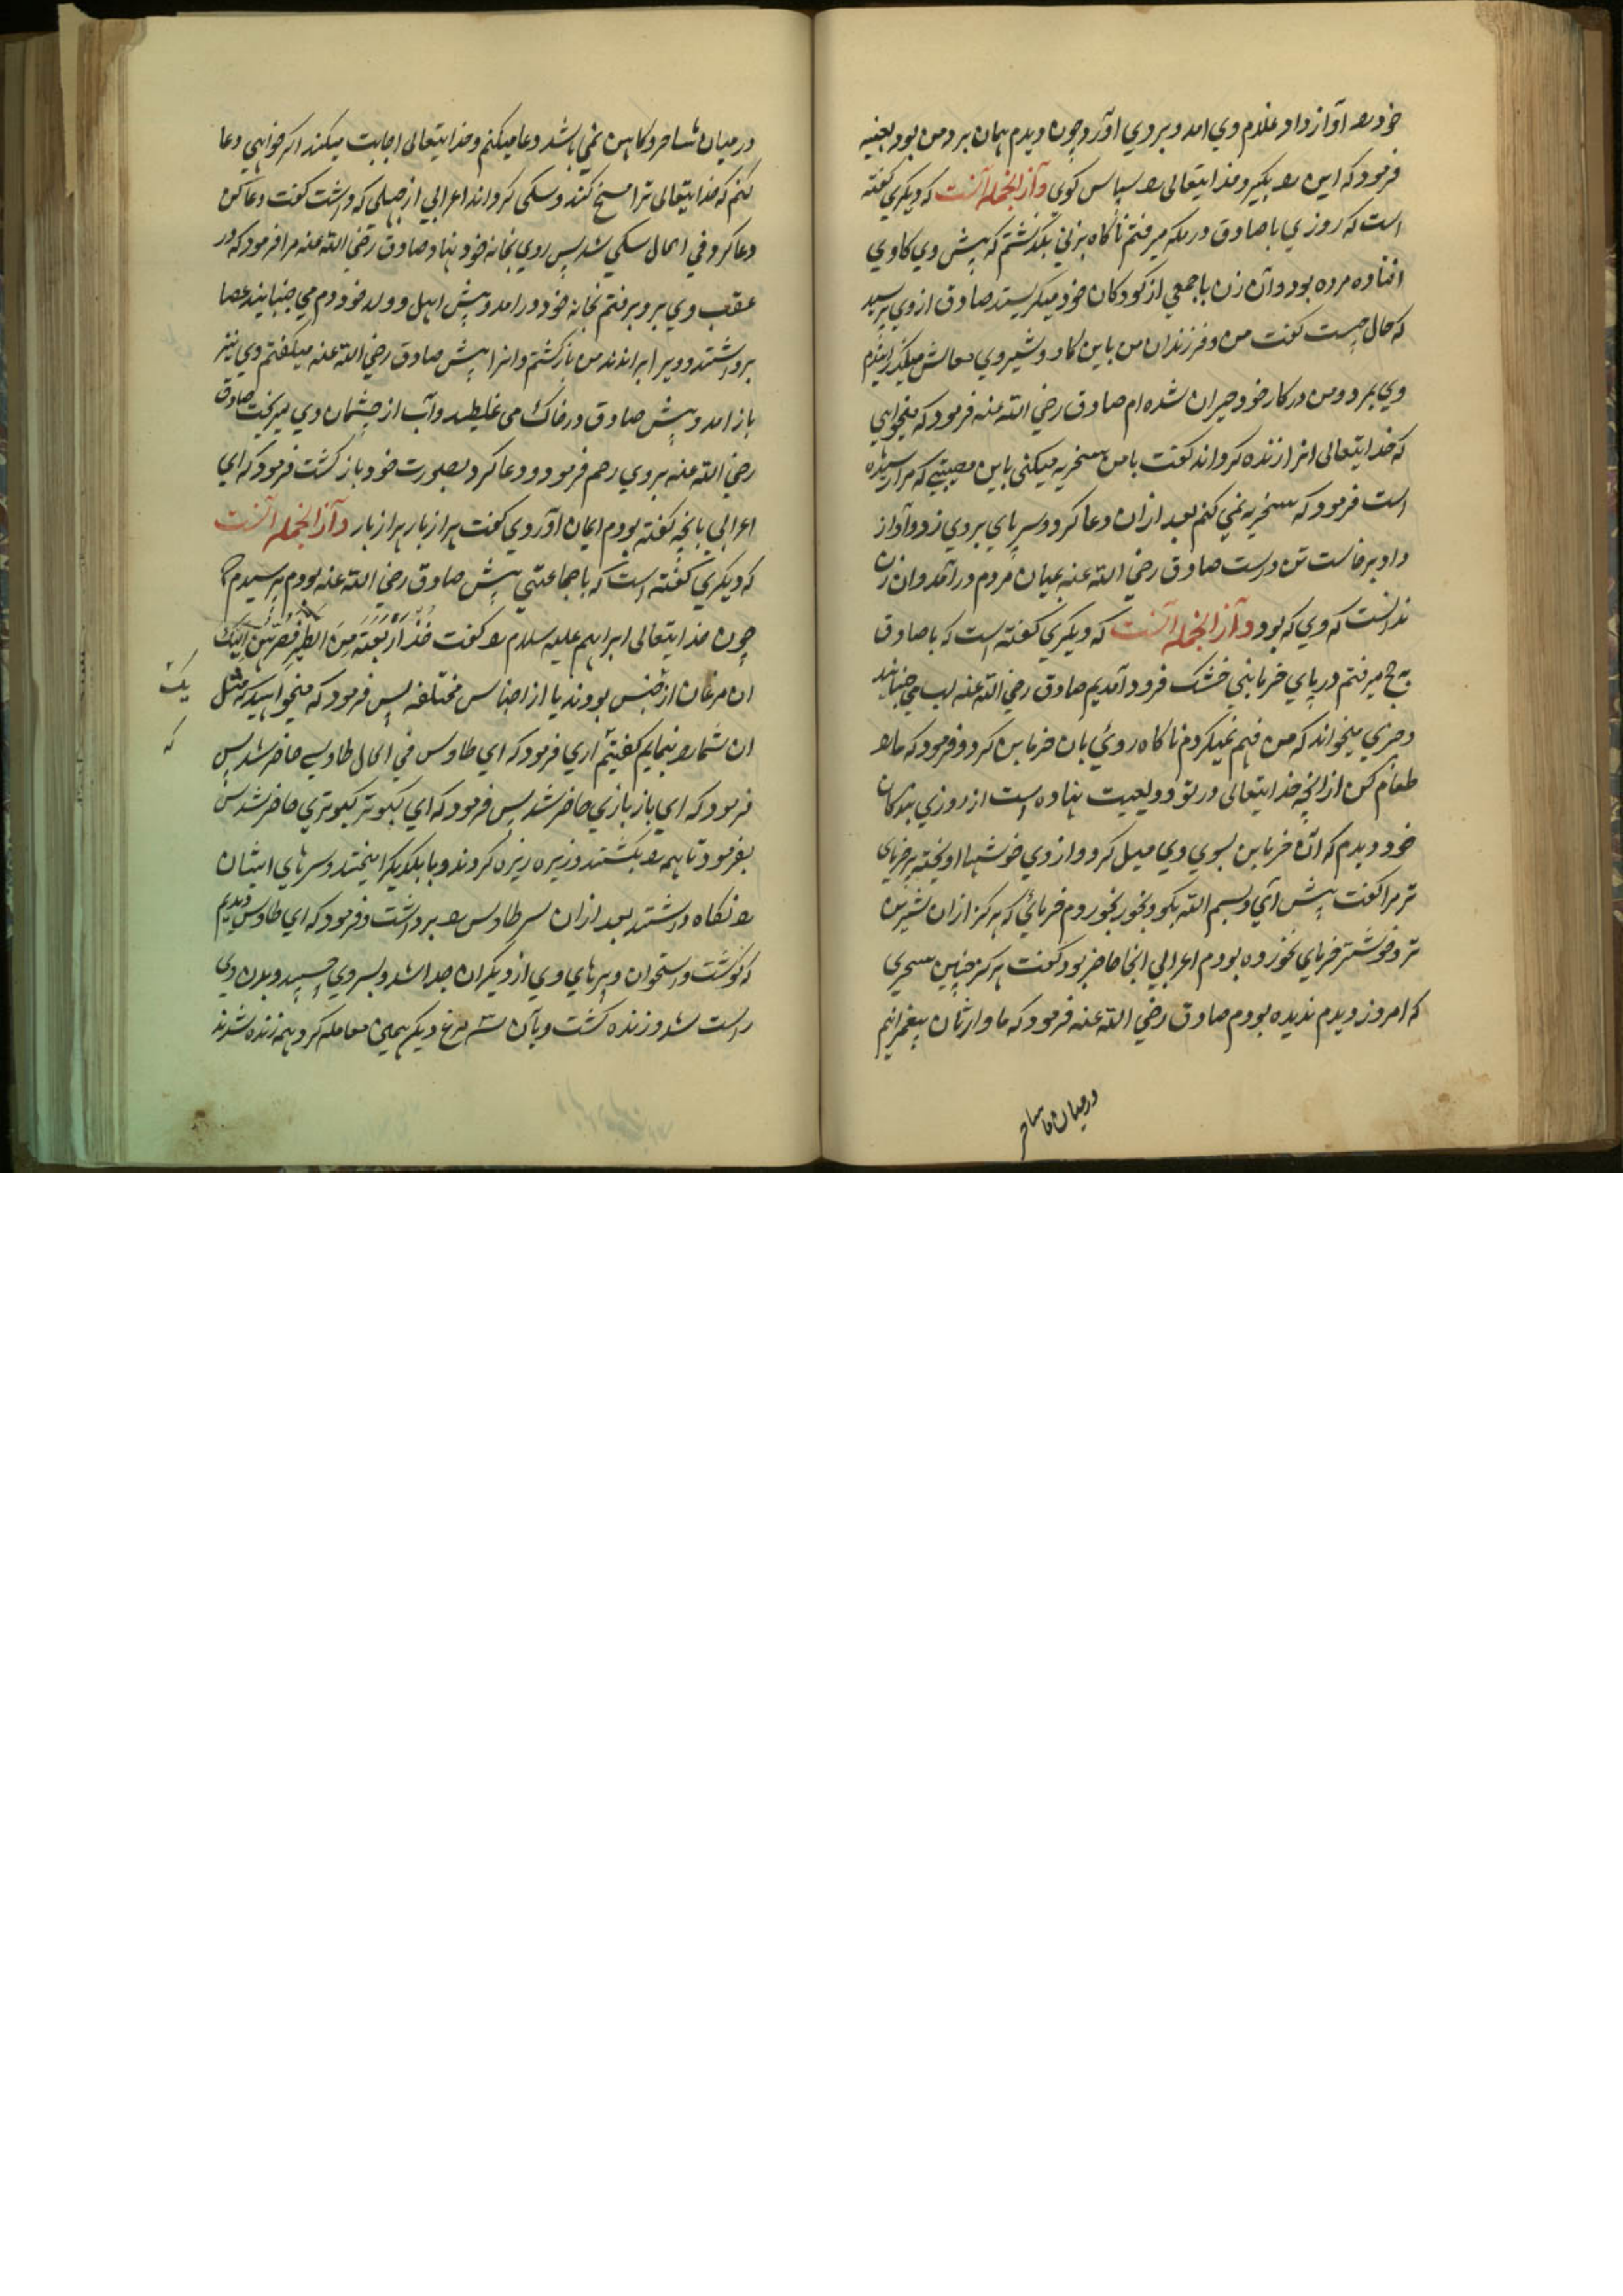 خود را آواز داد و غلام وي امد و بردي آورد چون ديدم همان برد من بود بعينه
فرمود كه اين را بكير و خدايتعالى را سپاس كوي و آز الجمله آنست كه ديكري كفته
است كه روزي با صادق در مكه ميرفتم ناكاه بزني بكذشتم كه پيش وي كاوي
افتاده مرده بود و آن زن با جمعي از كودكان خود ميكريستند صادق از وي پرسيد
كه حال چيست كفت من و فرزندان من باين كاو و شير وي معاش ميكذرانيديم
وي بمرد و من در كار خود حيران شده ام صادق رضي الله عنه فرمود كه ميخواهي
كه خدايتعالى انرا زنده كرداند كفت با من سخريه ميكني باين مصيبتي كه مرا رسيده
است فرمود كه سخريه نمي كنم بعد ازان دعا كرد و سر پاي بر وي زد و آواز
داد برخاست تن درست صادق رضي الله عنه بميان مردم درآمد و ان زن
ندانست كه وي كه بود و آز الجمله آنست كه ديكري كفته است كه با صادق
بحج ميرفتم در پاي خرمابني خشك فرود آمديم صادق رضي الله عنه لب مي جنبانيد
و چيزي ميخواند كه من فهم نميكردم ناكاه روي بان خرمابن كرد و فرمود كه ما را
طعام كن از انچه خدايتعالى در تو وديعت نهاده است از روزي بندكان
خود ديدم كه آن خرمابن بسوي وي ميل كرد و از وي خوشها اويخته پر خرماي
تر مرا كفت پيش آي و بسم الله بكو و بخور بخوردم خرمائي كه هركز ازان شيرين
تر و خوشتر خرماي نخورده بودم اعرابي انجا حاضر بود كفت هركز چنين سحري
كه امروز ديدم نديده بودم صادق رضي الله عنه فرمود كه ما وارثان پيغمبرانيم
در ميان ما ساحر
در ميان ما ساحر و كاهن نمي باشد دعا ميكنم و خدايتعالى اجابت ميكند اكر خواهي دعا
كنم كه خدايتعالى ترا مسخ كند و سكى كرداند اعرابي از جهلي كه داشت كفت دعا كن
دعا كرد في الحال سكي شد پس روي بخانه خود نهاد صادق رضي الله عنه مرا فرمود كه در
عقب وي برو برفتم بخانه خود درامد و پيش اهل و ولد خود دم مي جنبانيد عصا
برداشتند و ويرا براندند من بازكشتم و انرا پيش صادق رضي الله عنه ميكفتم وي نيز
باز امد و پيش صادق در خاك مى غليطيد و آب از چشمان وي ميريخت صادق
رضي الله عنه بر وي رحم فرمود و دعا كرد بصورت خود باز كشت فرمود كه اي
اعرابي بانچه كفته بودم ايمان آوردي كفت هزار بار هزار بار و آز الجمله آنست
كه ديكري كفته است كه با جماعتي پيش صادق رضي الله عنه بودم پرسيدم كه
چون خدايتعالى ابراهيم عليه سلام را كفت خُذْ اَرْبَعَةً مِنَ الطَّيْرِ فَصُرْهُنَّ اِلَيْكَ
ان مرغان از جنس بودند يا از اجناس مختلفه پس فرمود كه ميخواهيد كه مثل
يك
ان شما را بنمايم كفتيم آري فرمود كه اي طاوس في الحال طاوسي حاضر شد پس
كه
فرمود كه اي باز بازي حاضر شد پس فرمود كه اي كبوتر كبوتري حاضر شد پس
بفرمود تا همه را بكشتند و ريزه ريزه كردند و با يكديكر اميختند و سرهاي ايشان
را نكاه داشتند بعد ازان سر طاوس را برداشت و فرمود كه اي طاوس ديديم
كه كوشت و استخوان و پرهاي وي از ديكران جدا شد و بسر وي چسپيد و بدن وي
راست شد و زنده كشت و بآن مرغ ديكر همين معامله كرد همه زنده شدند